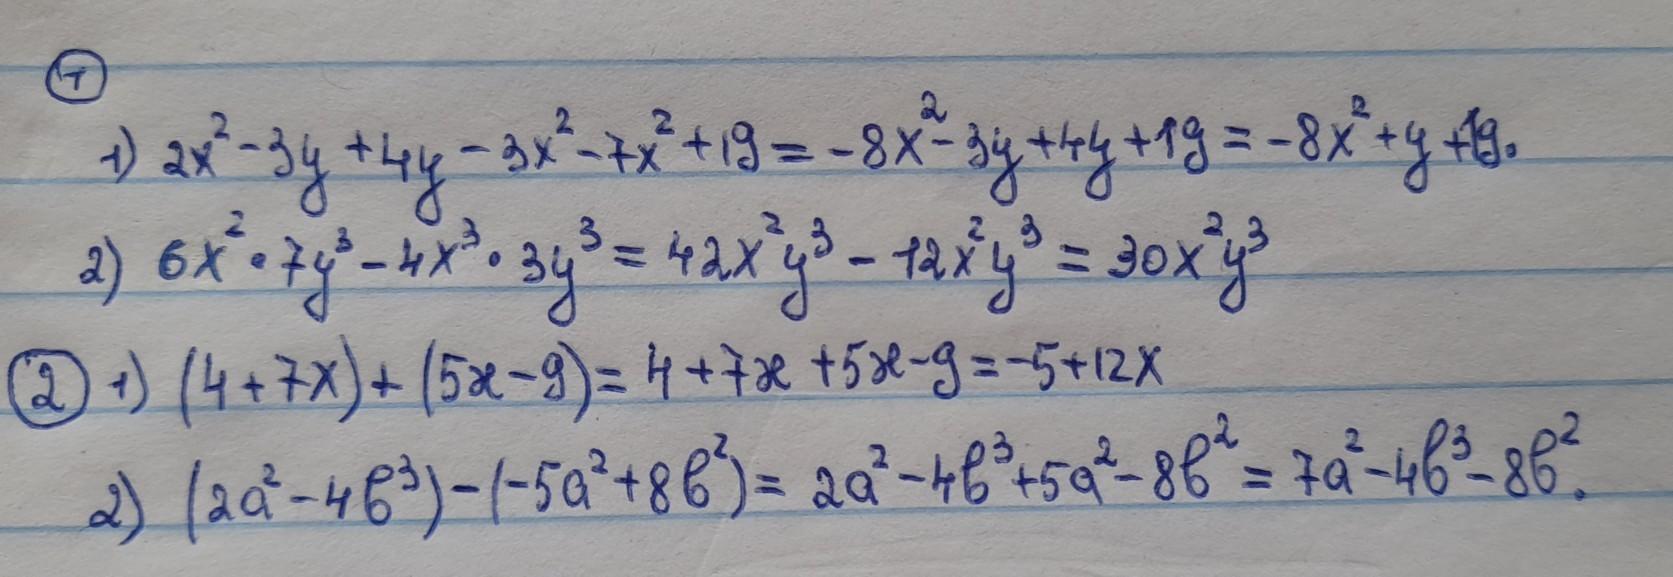 ①
1) 2x² - 3y + 4y - 3x² - 7x² + 19 = -8x² - 3y + 4y + 19 = -8x² + y + 19.
2) 6x² • 7y³ - 4x³ • 3y³ = 42x²y³ - 12x²y³ = 30x²y³
② 1) (4 + 7x) + (5x - 9) = 4 + 7x + 5x - 9 = -5 + 12x
2) (2a² - 4b³) - (-5a² + 8b²) = 2a² - 4b³ + 5a² - 8b² = 7a² - 4b³ - 8b².